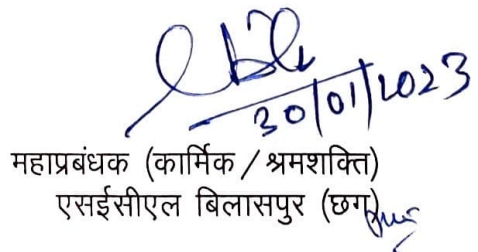 30/01/2023
महाप्रबंधक (कार्मिक / श्रमशक्ति)
एसईसीएल बिलासपुर (छग)